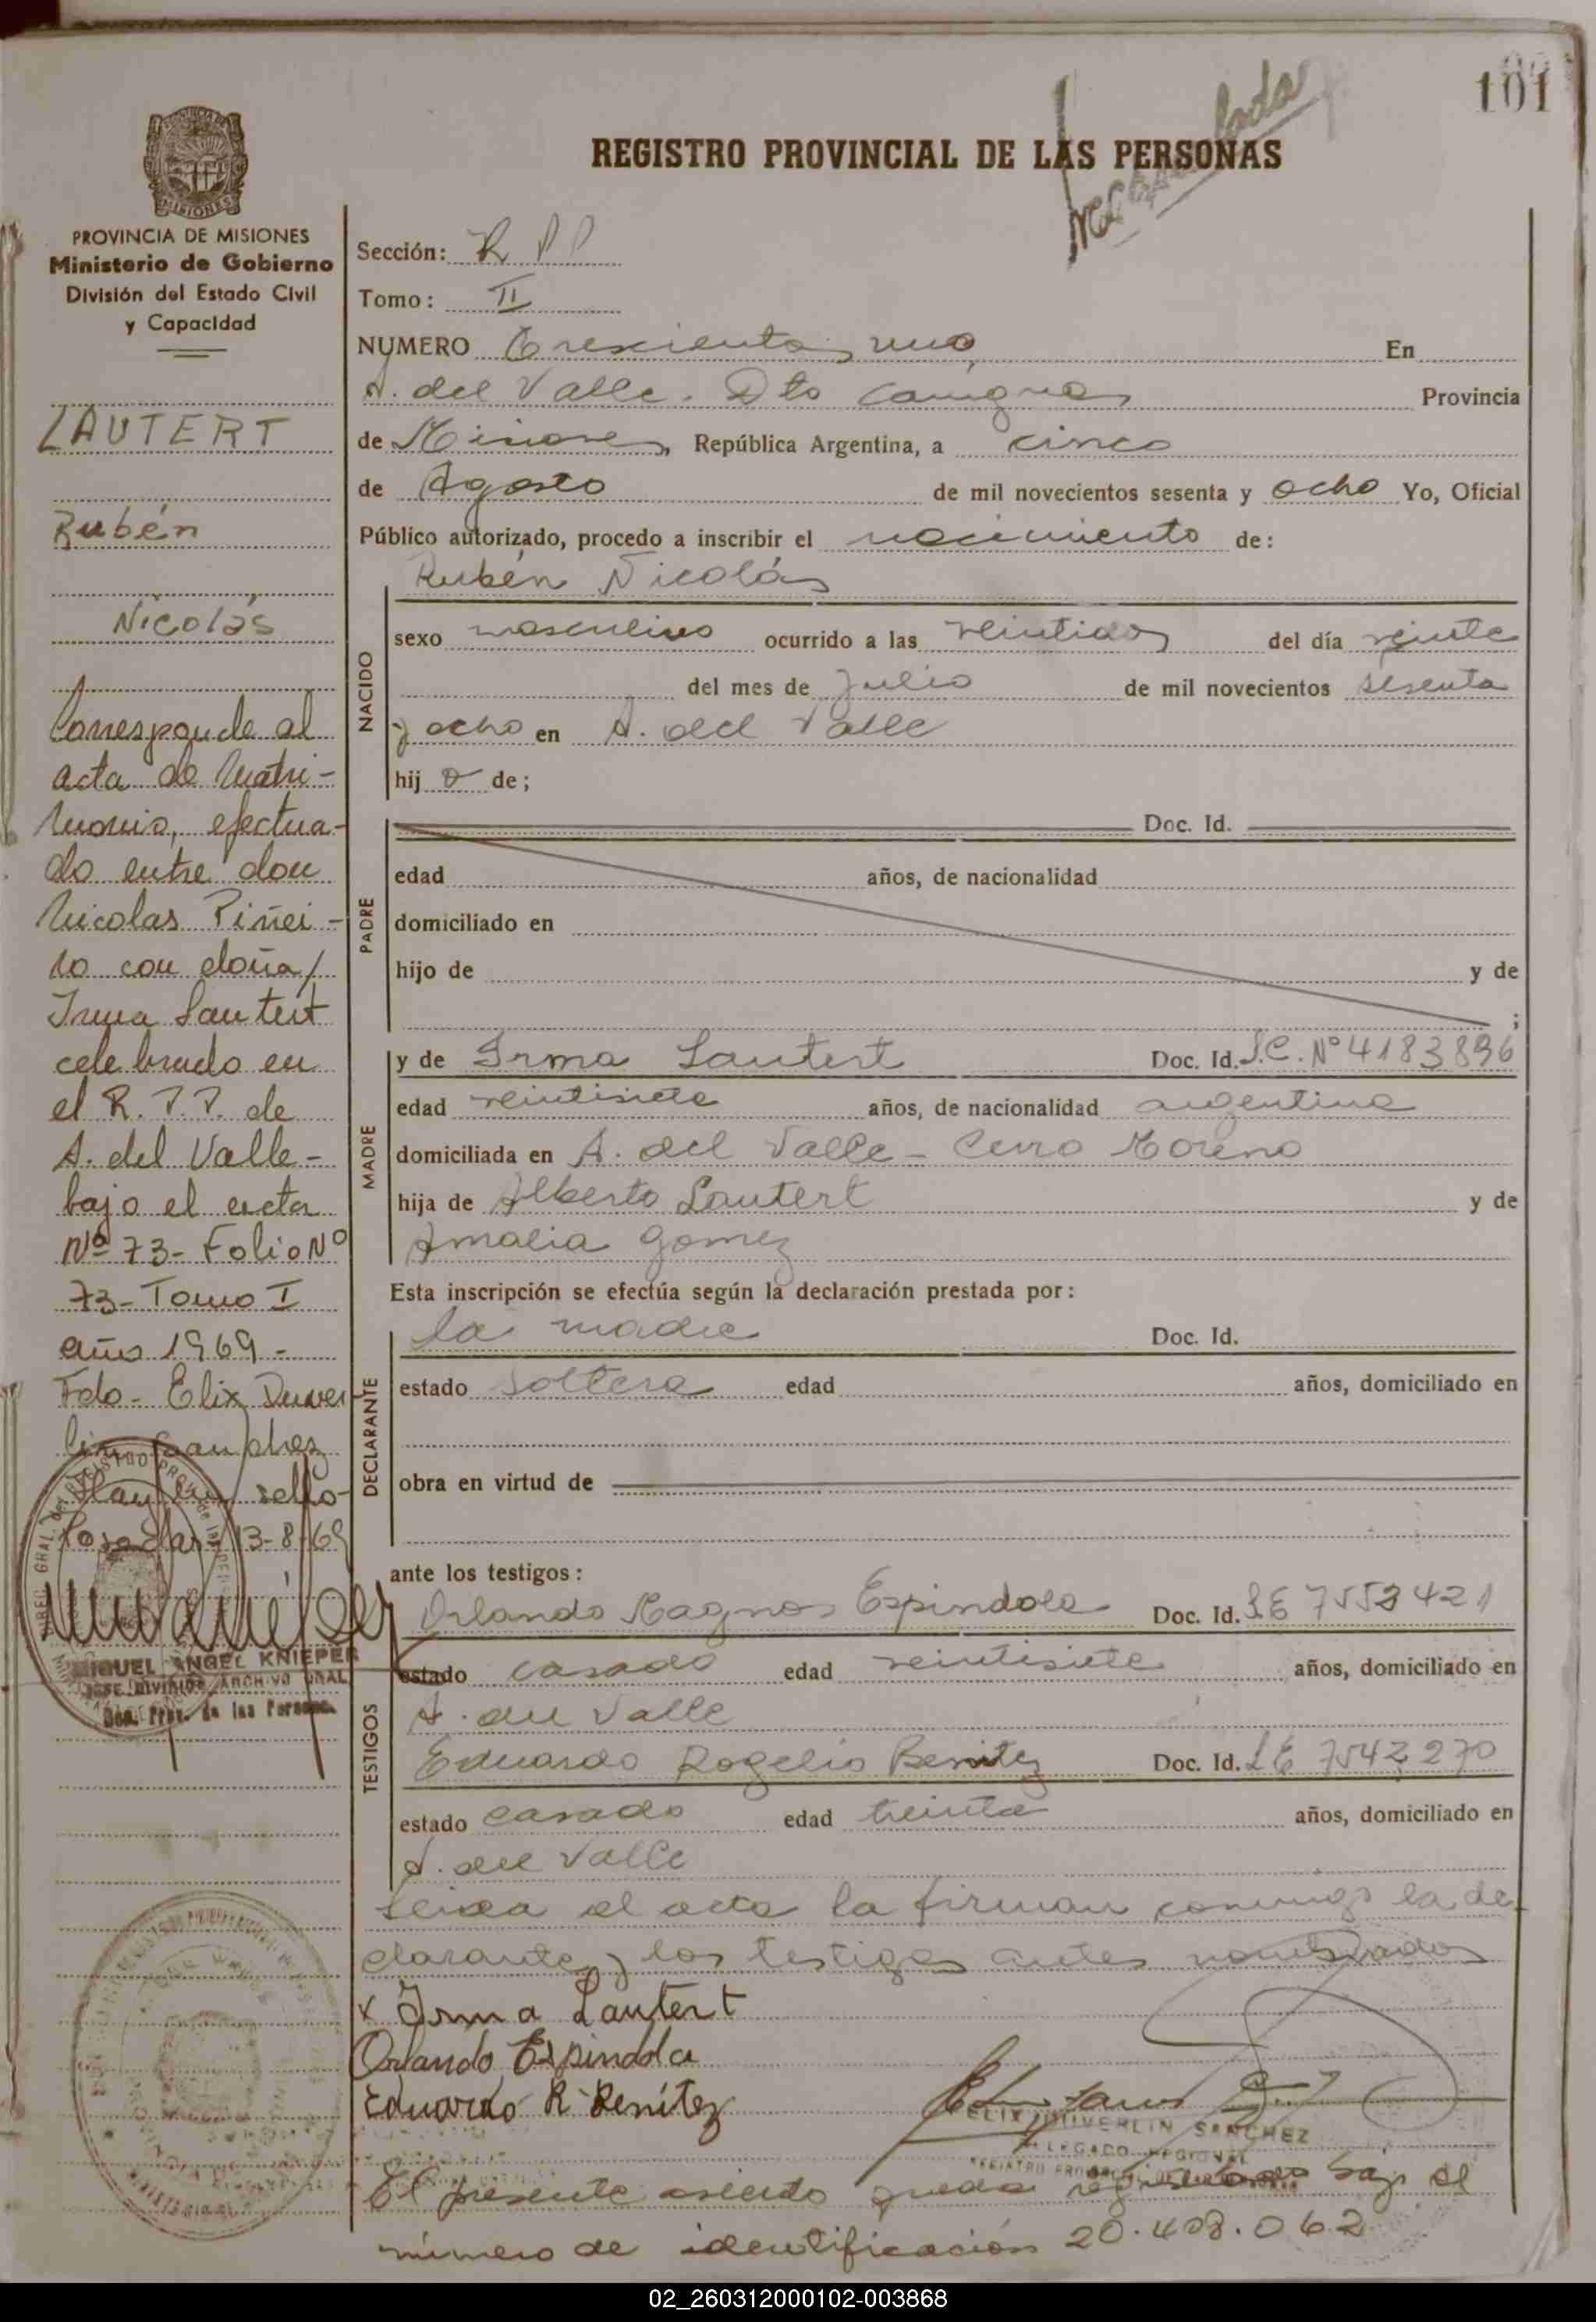 101
REGISTRO PROVINCIAL DE LAS PERSONAS
PROVINCIA DE MISIONES
Ministerio de Gobierno
División del Estado Civil
y Capacidad
LAUTERT
Rubén
Nicolás
Corresponde al
acta de Matri-
monio, efectua-
do entre don
Nicolas Piñei-
ro con doña/
Irma Lautert
celebrado en
el R.P.P. de
A. del Valle-
bajo el acta
Nº 73- Folio Nº
73- Tomo I
año 1969-
Fdo- Elix Duver
lin Sanchez
Hay un sello-
Posadas 13-8-69
MIGUEL ANGEL KNIEPER
JEFE DIVISION ARCHIVO GRAL
Sección: R P P
Tomo: II
NUMERO Trescientos uno En
A. del Valle. Dto Cainguas Provincia
de Misiones, República Argentina, a cinco
de Agosto de mil novecientos sesenta y ocho Yo, Oficial
Público autorizado, procedo a inscribir el nacimiento de:
Rubén Nicolás
NACIDO
sexo masculino ocurrido a las veintidos del día veinte
del mes de Julio de mil novecientos sesenta
y ocho en A. del Valle
hij o de;
PADRE
Doc. Id.
edad años, de nacionalidad
domiciliado en
hijo de y de
;
MADRE
y de Irma Lautert Doc. Id. L.C. Nº 4183896
edad veintisiete años, de nacionalidad argentina
domiciliada en A. del Valle - Cerro Moreno
hija de Alberto Lautert y de
Amalia Gomez
Esta inscripción se efectúa según la declaración prestada por:
DECLARANTE
la madre Doc. Id.
estado soltera edad años, domiciliado en
obra en virtud de
ante los testigos:
TESTIGOS
Orlando Magnos Espindola Doc. Id. LE 7553421
estado casado edad veintisiete años, domiciliado en
A. del Valle
Eduardo Rogelio Benitez Doc. Id. LE 7542270
estado casado edad treinta años, domiciliado en
A. del Valle
Leida el acta la firman conmigo la de-
clarante y los testigos antes nombrados
x Irma Lautert
Orlando Espindola
Eduardo R Benítez
ELIX DUVERLIN SANCHEZ
DELEGADO REGIONAL
El presente asiento queda registrado bajo el
número de identificación 20.408.062
02_260312000102-003868